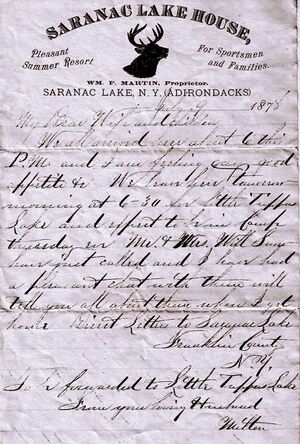 SARANAC LAKE HOUSE,
Pleasant
Summer Resort
For Sportsmen
and Families.
WM. F. MARTIN, Proprietor.
SARANAC LAKE, N.Y. (ADIRONDACKS)
July 9 1878
My Dear Wife and children
We all arrived here about 6 this
P.M. and I am feeling very good
appetite &c We leave here tomorrow
morning at 6-30 for Little Tupper
Lake and expect to be in Camp
thursday Mr & Mrs. Will
have just called and I have had
a pleasant chat with them will
tell you all about them when I get
home Direct Letters to Saranac Lake
Franklin County
N.Y.
To be forwarded to Little Tupper Lake
From your loving Husband
Milton